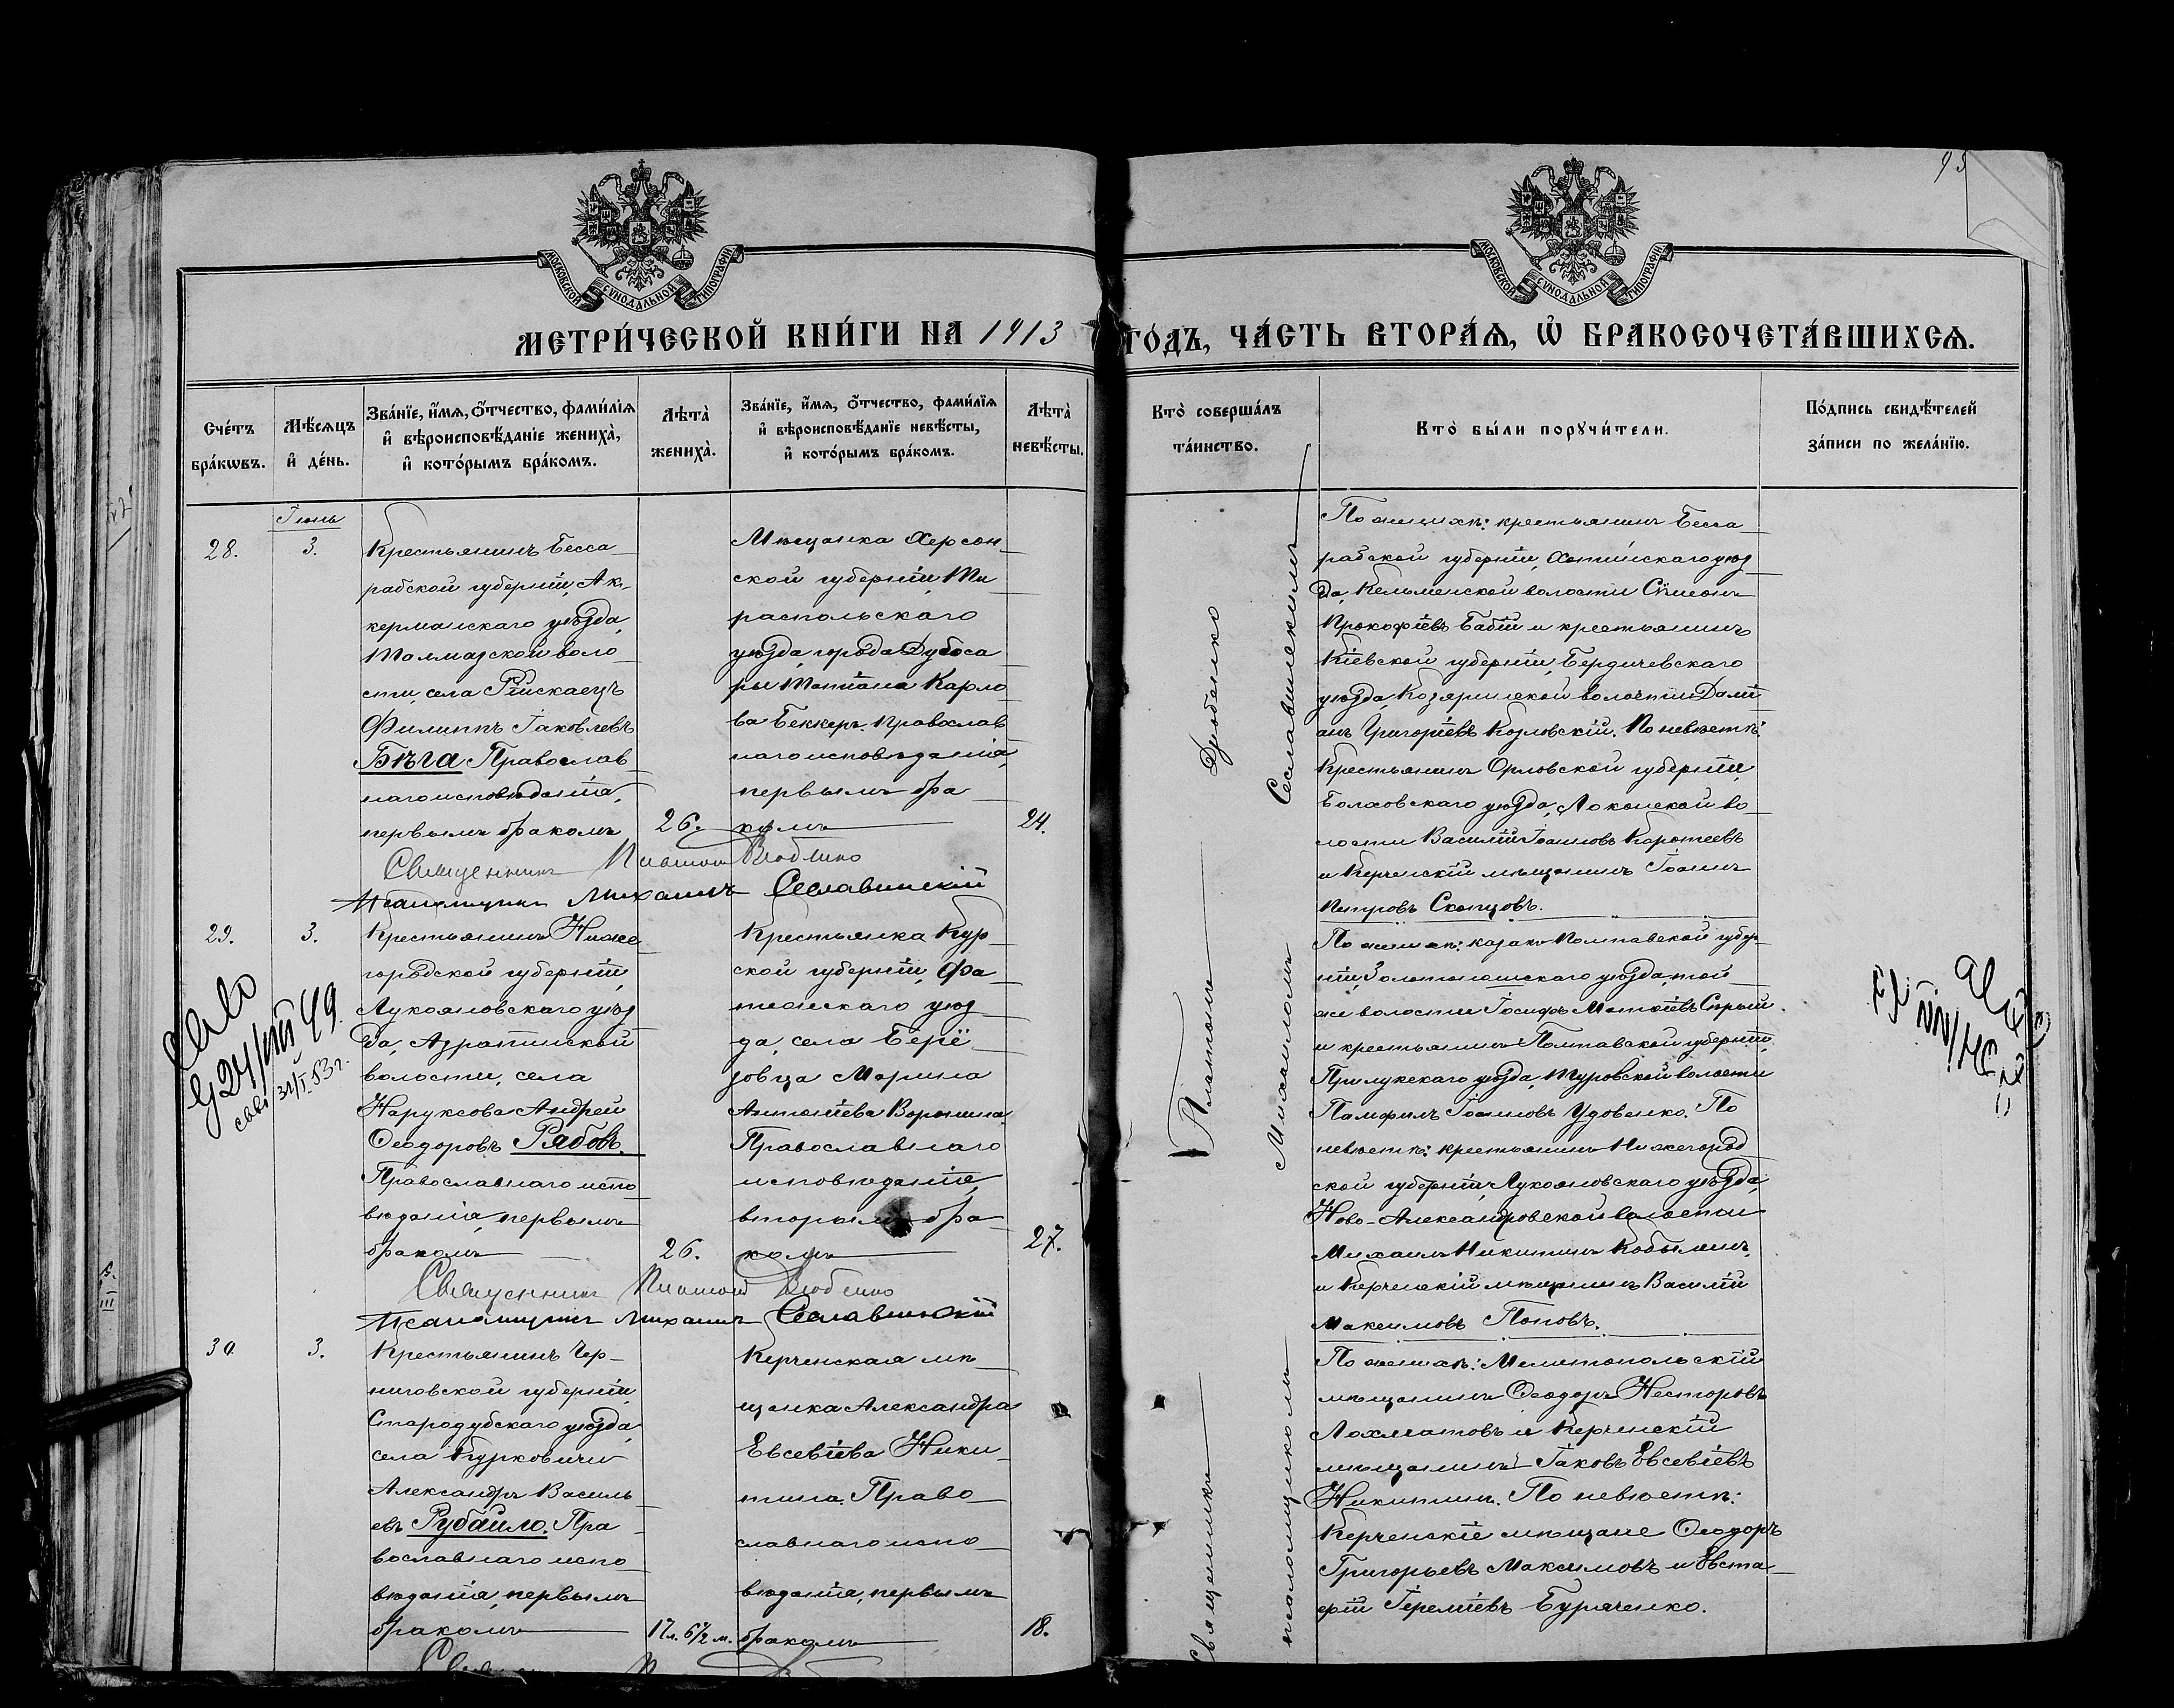 95
МОСКОВСКОЙ СѴНОДАЛЬНОЙ ТИПОГРАФІИ
МОСКОВСКОЙ СѴНОДАЛЬНОЙ ТИПОГРАФІИ
МЕТРИ́ЧЕСКОЙ КНИ́ГИ НА 1913 ГО́ДЪ, ЧА́СТЬ ВТОРА́Ѧ, Ѡ҆ БРАКОСОЧЕТА́ВШИХСѦ.
Сче́тъ бра́кѡвъ.
Мѣ́сяцъ и҆ де́нь.
Зва́нїе, и҆́мя, ѻ҆́тчество, фами́лїя
и҆ вѣроисповѣ́данїе жениха̀,
и҆ кото́рымъ бра́комъ.
Лѣта̀ жениха̀.
Зва́нїе, и҆́мя, ѻ҆́тчество, фами́лїя
и҆ вѣроисповѣ́данїе невѣ́сты,
и҆ кото́рымъ бра́комъ.
Лѣта̀ невѣ́сты.
Кто̀ соверша́лъ
та́инство.
Кто̀ бы́ли порꙋчи́тели.
По́дпись свидѣ́телей
за́писи по жела́нїю.
28.
Іюнь
3.
Крестьянинъ Бесса
рабской губерніи, Ак-
керманскаго уѣзда,
Талмазской воло
сти, села Раискаецъ
Филиппъ Іаковлевъ
Бѣга Православ
наго исповѣданія,
первымъ бракомъ
26.
Мѣщанка Херсон
ской губерніи, Ти
распольскаго
уѣзда, города Дубоса
ры Татіана Карло
ва Беккеръ. Православ
наго исповѣданія,
первымъ бра
комъ
24.
Священникъ Платонъ Дзюбенко
Псаломщикъ Михаилъ Сеславинскій
По женихѣ: крестьянинъ Бесса
рабской губерніи, Хотинскаго уѣз
да, Кельменской волости Сѵмеонъ
Прокофіевъ Бабій и крестьянинъ
Кіевской губерніи, Бердичевскаго
уѣзда, волости Дамі
анъ Григоріевъ Козловскій. По невѣстѣ:
Крестьянинъ Орловской губерніи,
Болховскаго уѣзда, Локонской во
лости Василій Іоанновъ Каротеевъ
и Керченскій мѣщанинъ Іоаннъ
Петровъ Скопцовъ.
29.
3.
Крестьянинъ Ниже
городской губерніи,
Лукояновскаго уѣз
да, Азрапинской
волости, села
Наруксова Андрей
Ѳеодоровъ Рябовъ.
Православнаго испо
вѣданія, первымъ
бракомъ
26.
Крестьянка Кур
ской губерніи, Фа
тежскаго уѣз
да, села Берё
зовца Марина
Антоніева Воронина
Православнаго
исповѣданія,
вторымъ бра
комъ
27.
Священникъ Платонъ Дзюбенко
Псаломщикъ Михаилъ Сеславинскій
По женихѣ: казакъ Полтавской губер
ніи, Золотоношскаго уѣзда, той
же волости Іосифъ Матѳіевъ Сѣрый
и крестьянинъ Полтавской губерніи,
Прилукскаго уѣзда, Туровской волости
Памфилъ Іоанновъ Удовенко. По
невѣстѣ: крестьянинъ Нижегород
ской губерніи, Лукояновскаго уѣзда,
Ново-Александровской волости
Михаилъ Никитинъ Кобылинъ,
и Керченскій мѣщанинъ Василій
Максимовъ Поповъ.
30.
3.
Крестьянинъ Чер
ниговской губерніи,
Стародубскаго уѣзда,
села Курковичи
Александръ Василь
евъ Рубайло. Пра
вославнаго испо
вѣданія, первымъ
бракомъ
17 л. 6½ м.
Керченская мѣ
щанка Александра
Евсевіева Ники
тина. Право
славнаго испо
вѣданія, первымъ
бракомъ
18.
По женихѣ: Мелитопольскій
мѣщанинъ Ѳеодоръ Несторовъ
Лохматовъ и Керченскій
мѣщанинъ Іаковъ Евсевіевъ
Никитинъ. По невѣстѣ:
Керченскіе мѣщане Ѳеодоръ
Григорьевъ Максимовъ и Евста
фій Іереміевъ Бураченко.
Священникъ Платонъ Дзюбенко
псаломщикомъ Михаиломъ Сеславинскимъ